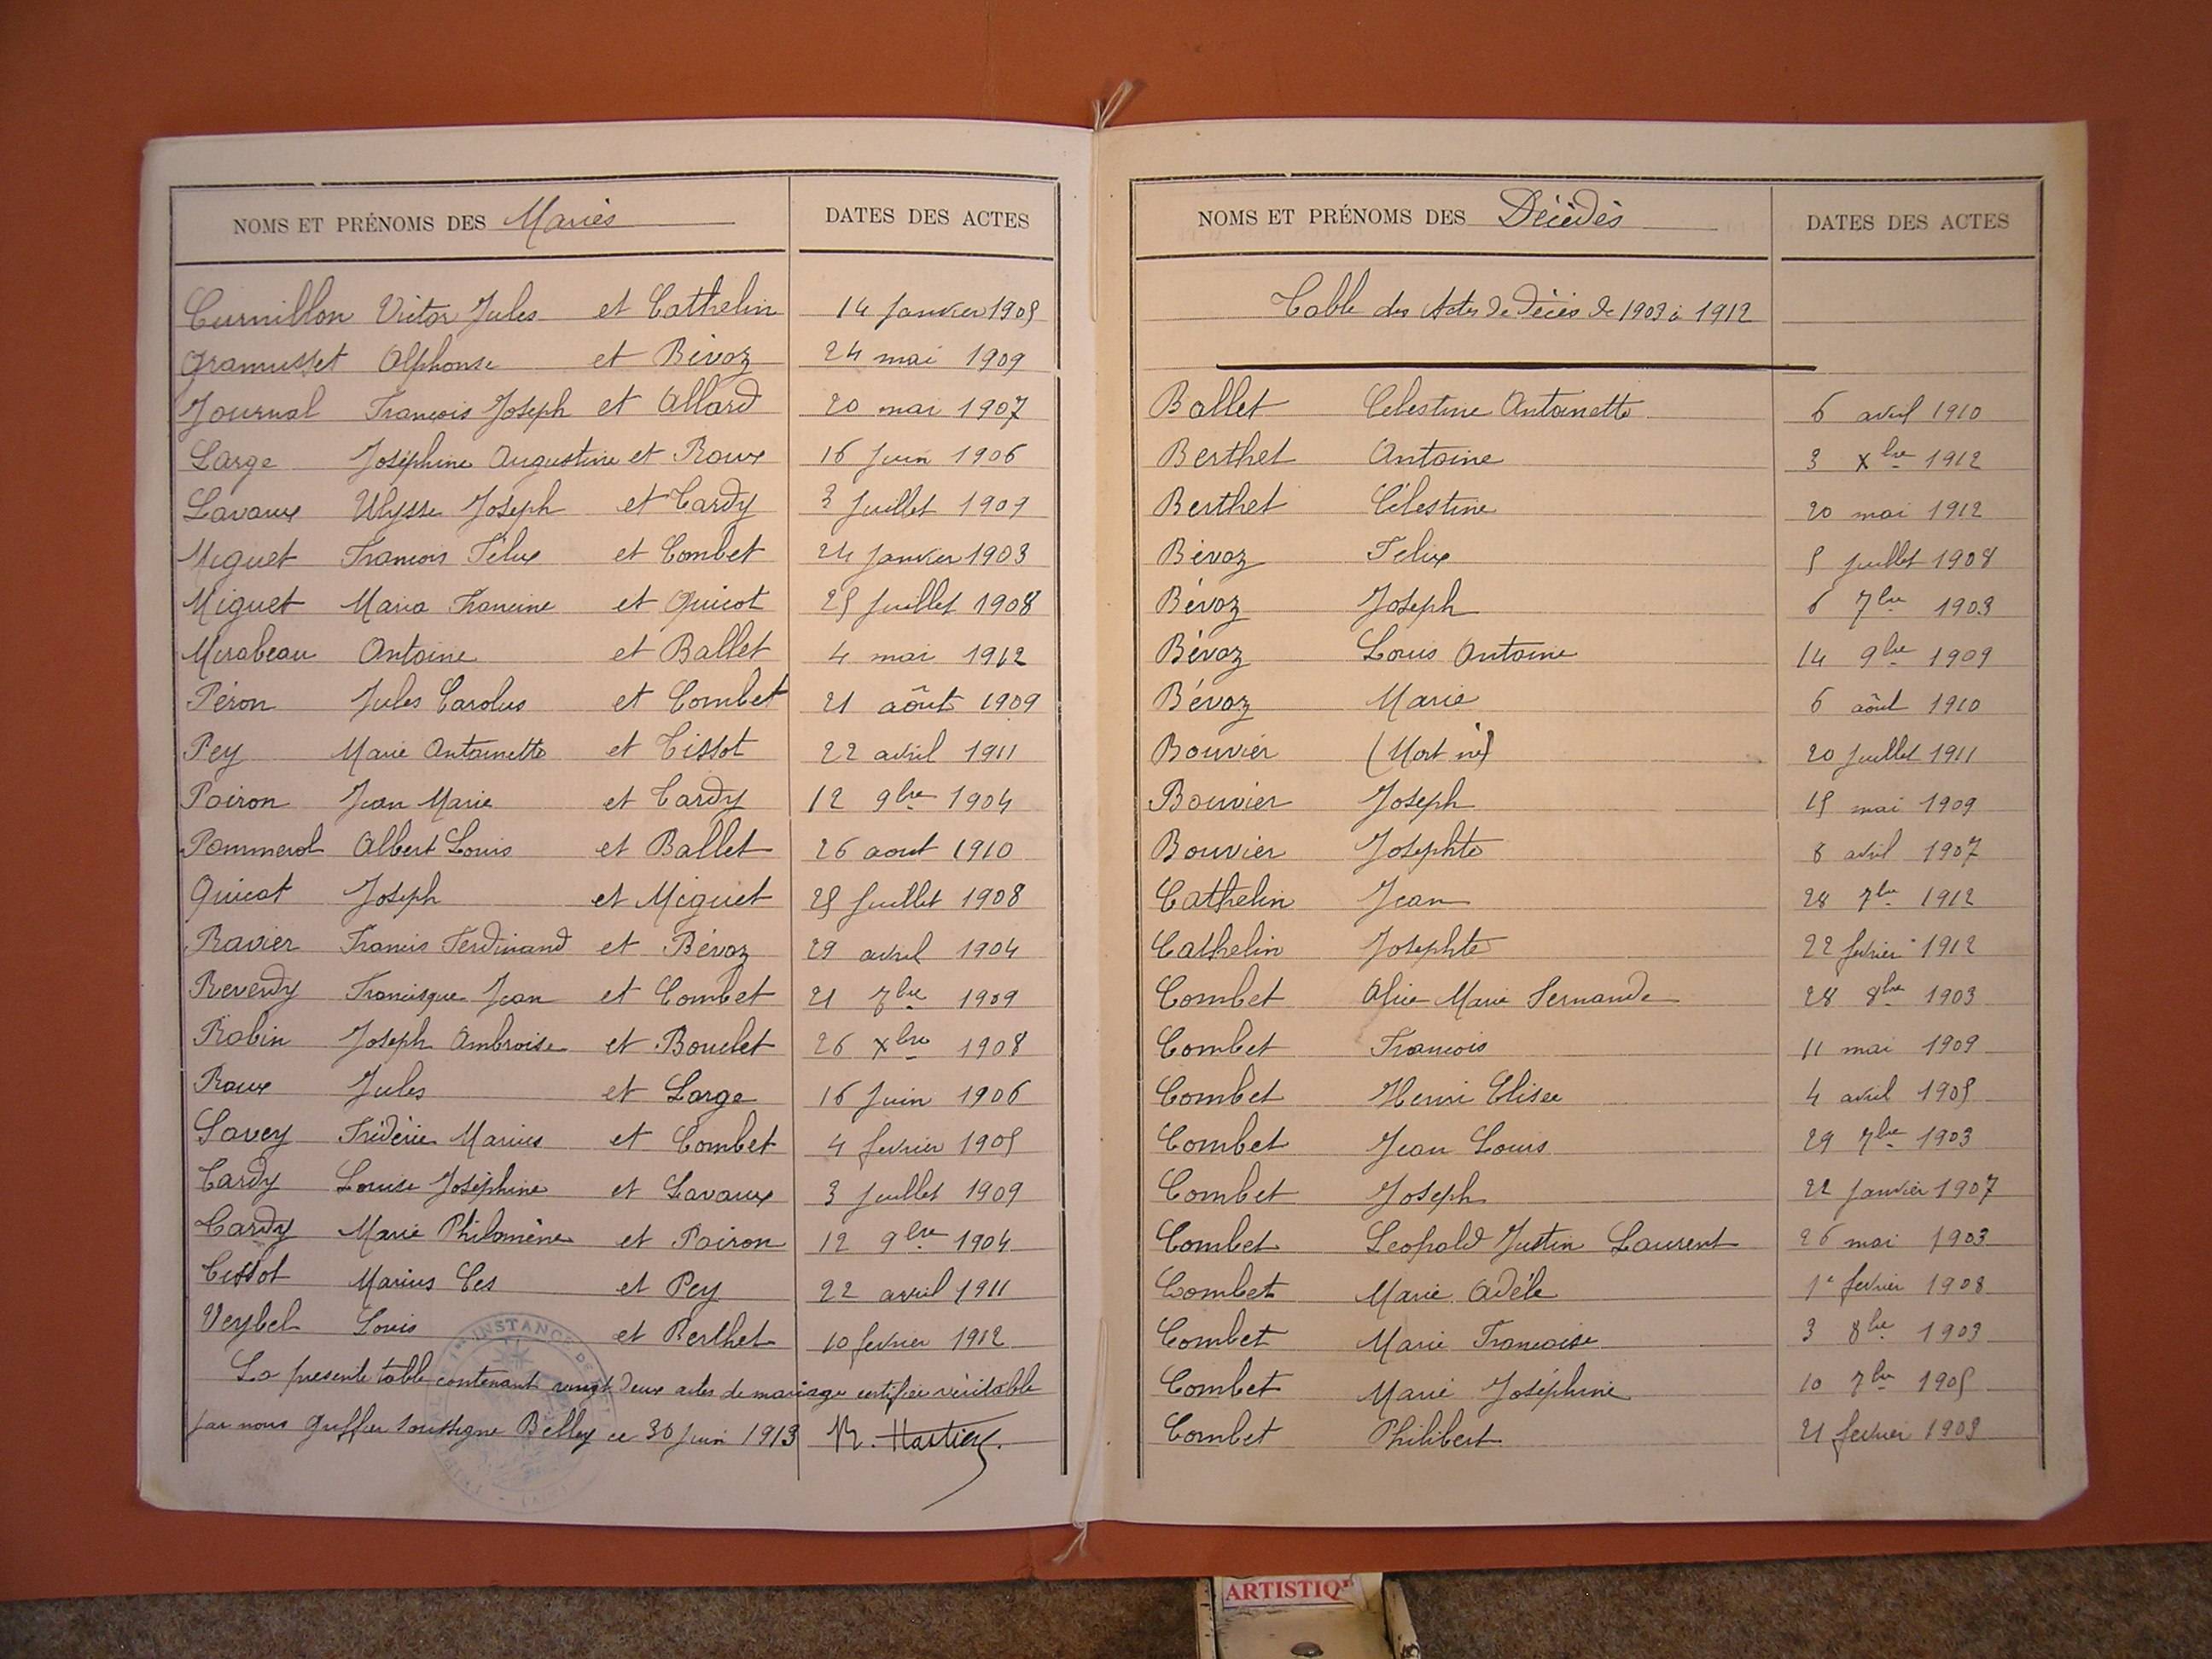 NOMS ET PRÉNOMS DES Mariés DATES DES ACTES
Curnillon Victor Jules et Cathelin 14 Janvier 1905
Gramusset Alphonse et Bévoz 24 mai 1909
Journal François Joseph et Allard 20 mai 1907
Large Joséphine Augustine et Roux 16 Juin 1906
Lavaux Ulysse Joseph et Tardy 3 Juillet 1909
Miguet François Félix et Combet 24 Janvier 1903
Miguet Maria Francine et Quicot 25 Juillet 1908
Mirabeau Antoine et Ballet 4 mai 1912
Péron Jules Carolus et Combet 21 août 1909
Pey Marie Antoinette et Tissot 22 avril 1911
Poiron Jean Marie et Tardy 12 9bre 1904
Pommerol Albert Louis et Ballet 26 aout 1910
Quicot Joseph et Miguet 25 Juillet 1908
Ravier Francis Ferdinand et Bévoz 29 avril 1904
Reverdy Francisque Jean et Combet 21 7bre 1909
Robin Joseph Ambroise et Bouclet 26 Xbre 1908
Roux Jules et Large 16 Juin 1906
Savey Frédéric Marius et Combet 4 fevrier 1905
Tardy Louise Joséphine et Lavaux 3 Juillet 1909
Tardy Marie Philomène et Poiron 12 9bre 1904
Tissot Marius et Pey 22 avril 1911
Veybel Louis et Berthet 10 fevrier 1912
La presente table contenant vingt deux actes de mariage certifiée véritable
par nous Greffier soussigne Belley ce 30 Juin 1913
INSTANCE DE
NOMS ET PRÉNOMS DES Décédés DATES DES ACTES
Table des Actes de Décès de 1903 à 1912
Ballet Celestine Antoinette 6 avril 1910
Berthet Antoine 3 Xbre 1912
Berthet Célestine 20 mai 1912
Bévoz Felix 5 Juillet 1908
Bévoz Joseph 6 7bre 1903
Bévoz Louis Antoine 14 9bre 1909
Bévoz Marie 6 août 1910
Bouvier (Mort né) 20 Juillet 1911
Bouvier Joseph 15 mai 1909
Bouvier Josephte 8 avril 1907
Cathelin Jean 28 7bre 1912
Cathelin Josephte 22 fevrier 1912
Combet Alice Marie Fernande 28 8bre 1903
Combet François 11 mai 1909
Combet Henri Elisee 4 avril 1905
Combet Jean Louis 29 7bre 1903
Combet Joseph 22 Janvier 1907
Combet Leopold Justin Laurent 26 mai 1903
Combet Marie Adèle 1e fevrier 1908
Combet Marie Françoise 3 8bre 1903
Combet Marie Joséphine 10 7bre 1905
Combet Philibert 21 fevrier 1903
ARTISTIQ